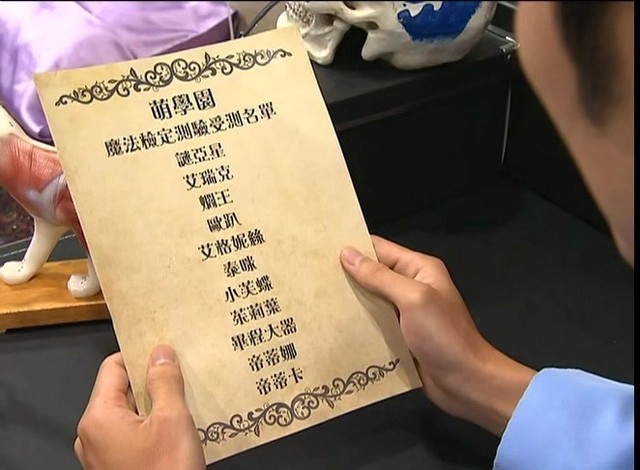 萌學園
魔法檢定測驗受測名單
謎亞星
艾瑞克
爛王
歐趴
艾格妮絲
泰咪
小芙蝶
茱莉葉
畢程大器
帝蒂娜
帝蒂卡